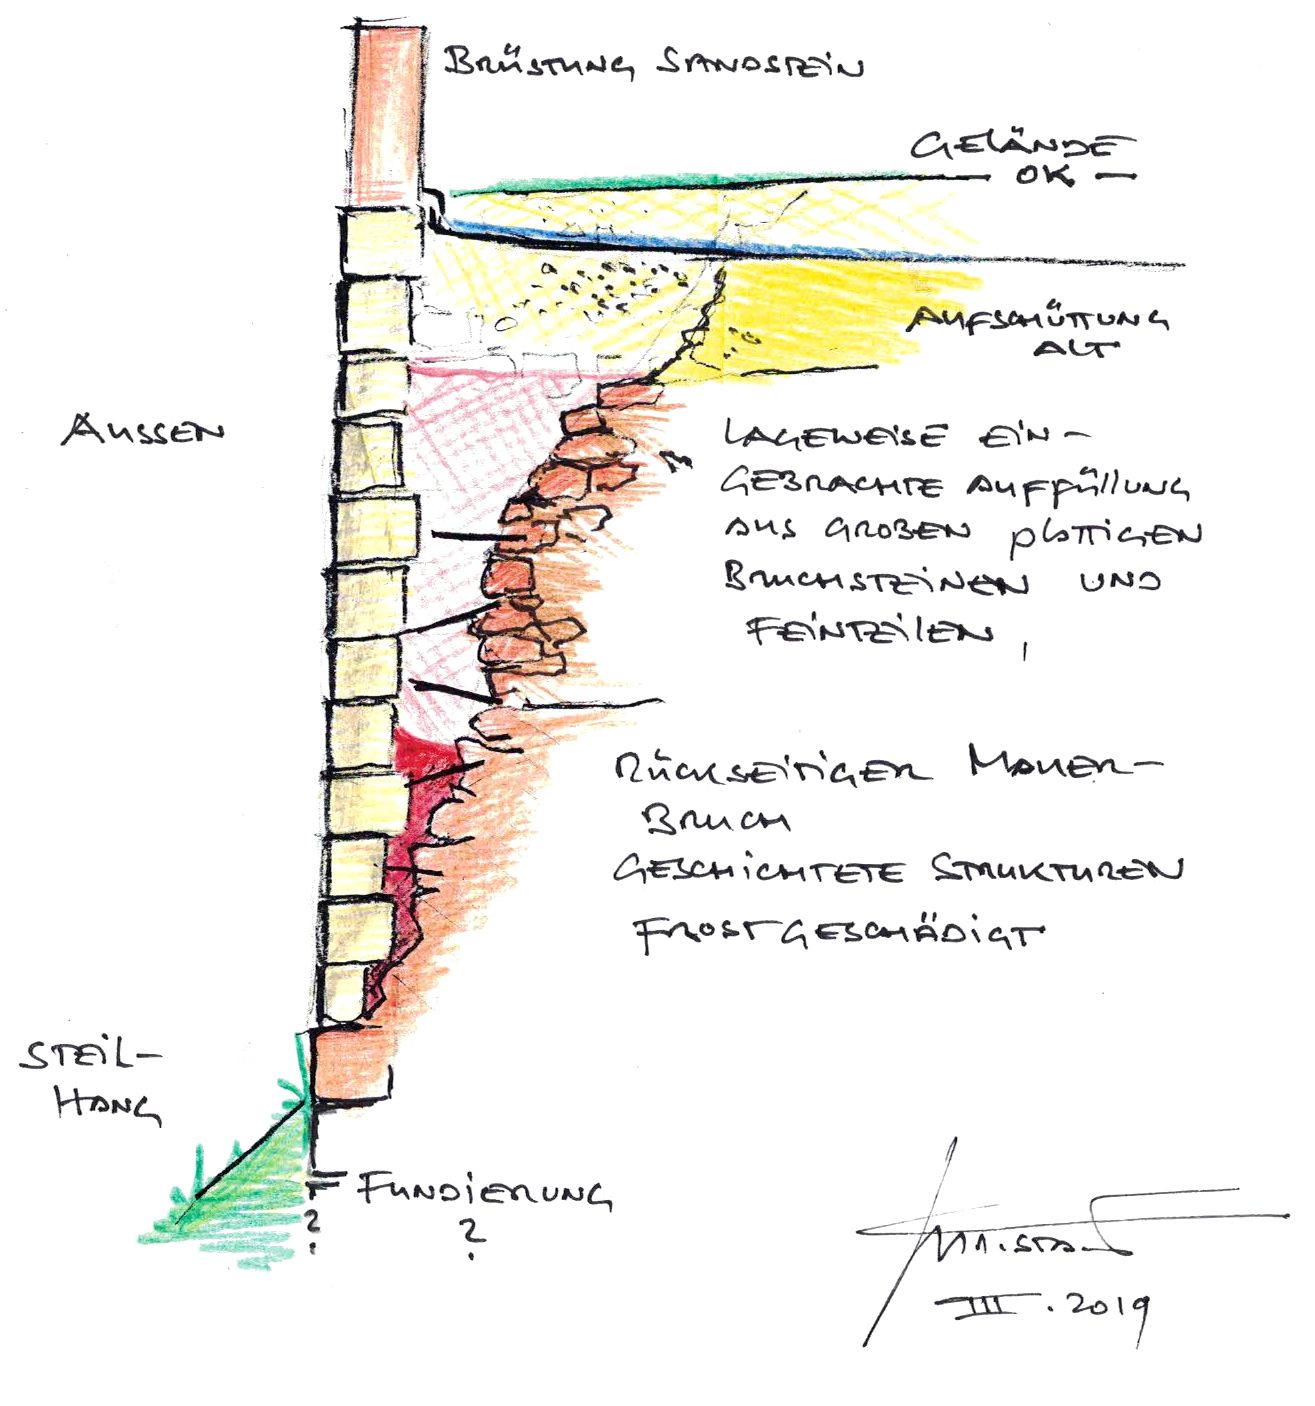 BRÜSTUNG SANDSTEIN
GELÄNDE
OK
AUFSCHÜTTUNG
ALT
AUSSEN
LAGEWEISE EIN-
GEBRACHTE AUFFÜLLUNG
AUS GROBEN PLATTIGEN
BRUCHSTEINEN UND
FEINTEILEN,
RÜCKSEITIGER MAUER-
BRUCH
GESCHICHTETE STRUKTUREN
FROSTGESCHÄDIGT
STEIL-
HANG
FUNDIERUNG
? ?
III.2019